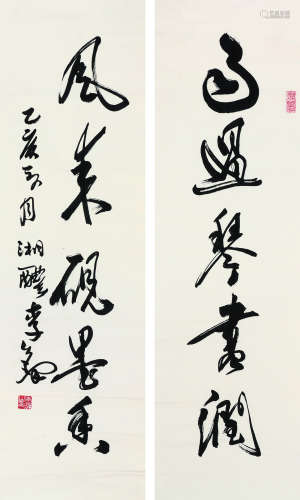 雨過琴書潤
風來硯墨香
乙亥 月 湘醴 李鐸